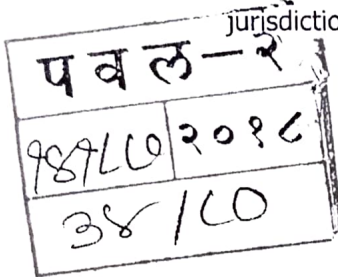 jurisdictio
पवल-२
२०१८
३४/८०